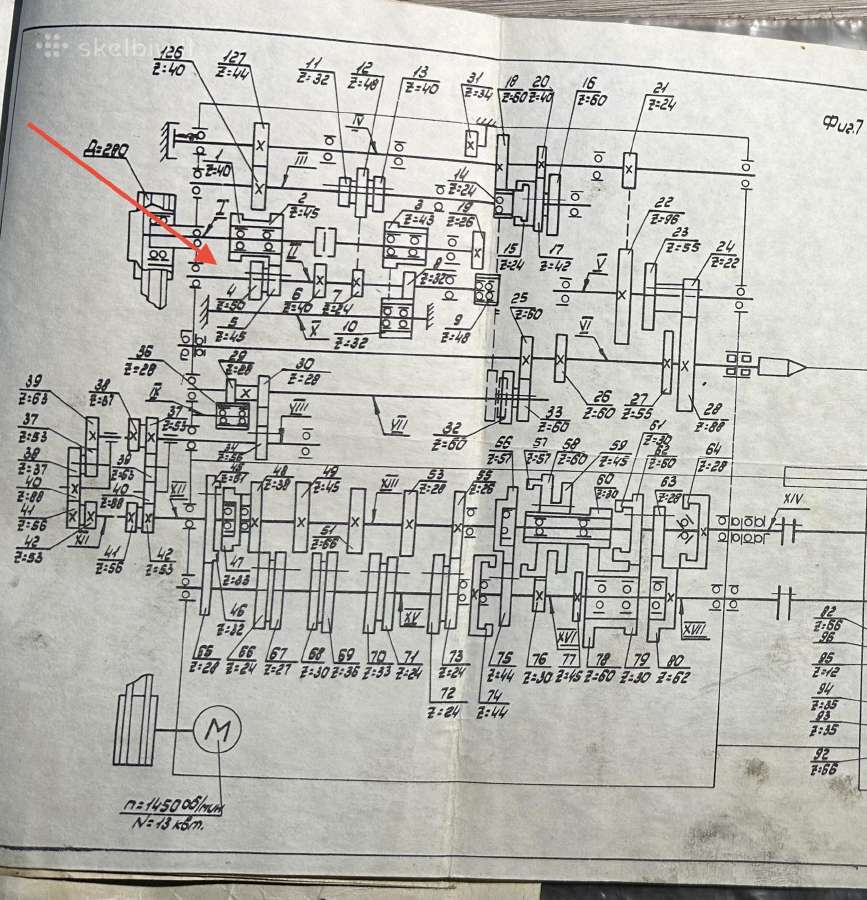 skelbiu.lt
126
Z=40
127
Z=44
11
Z=32
12
Z=48
13
Z=40
31
Z=34
18
Z=60
20
Z=40
16
Z=60
21
Z=24
Фиг.7
Д=280
IV
III
1
Z=40
2
Z=45
3
Z=43
14
Z=24
19
Z=26
15
Z=24
17
Z=42
22
Z=96
23
Z=55
24
Z=22
I
II
V
4
Z=50
5
Z=45
6
Z=40
7
Z=24
8
Z=32
X
10
Z=32
9
Z=48
25
Z=60
VI
26
Z=60
27
Z=55
28
Z=88
36
Z=28
29
Z=28
30
Z=28
IX
VIII
VII
32
Z=60
33
Z=60
39
Z=63
38
Z=37
37
Z=53
37
Z=53
38
Z=37
39
Z=63
40
Z=88
40
Z=88
41
Z=56
42
Z=53
XII
XII
41
Z=56
42
Z=53
48
Z=38
49
Z=45
51
Z=66
XIII
53
Z=28
55
Z=26
56
Z=57
57
Z=57
58
Z=60
59
Z=45
60
Z=30
61
Z=30
62
Z=60
63
Z=28
64
Z=28
XIV
47
Z=33
46
Z=32
65
Z=28
66
Z=24
67
Z=27
68
Z=30
69
Z=36
70
Z=33
71
Z=24
XV
72
Z=24
73
Z=24
74
Z=44
75
Z=44
76
Z=30
77
Z=45
78
Z=60
79
Z=30
80
Z=62
XVI
XVII
82
Z=66
96
95
Z=12
94
Z=35
93
Z=35
92
Z=66
M
n=1450 об/мин
N=13 квт.